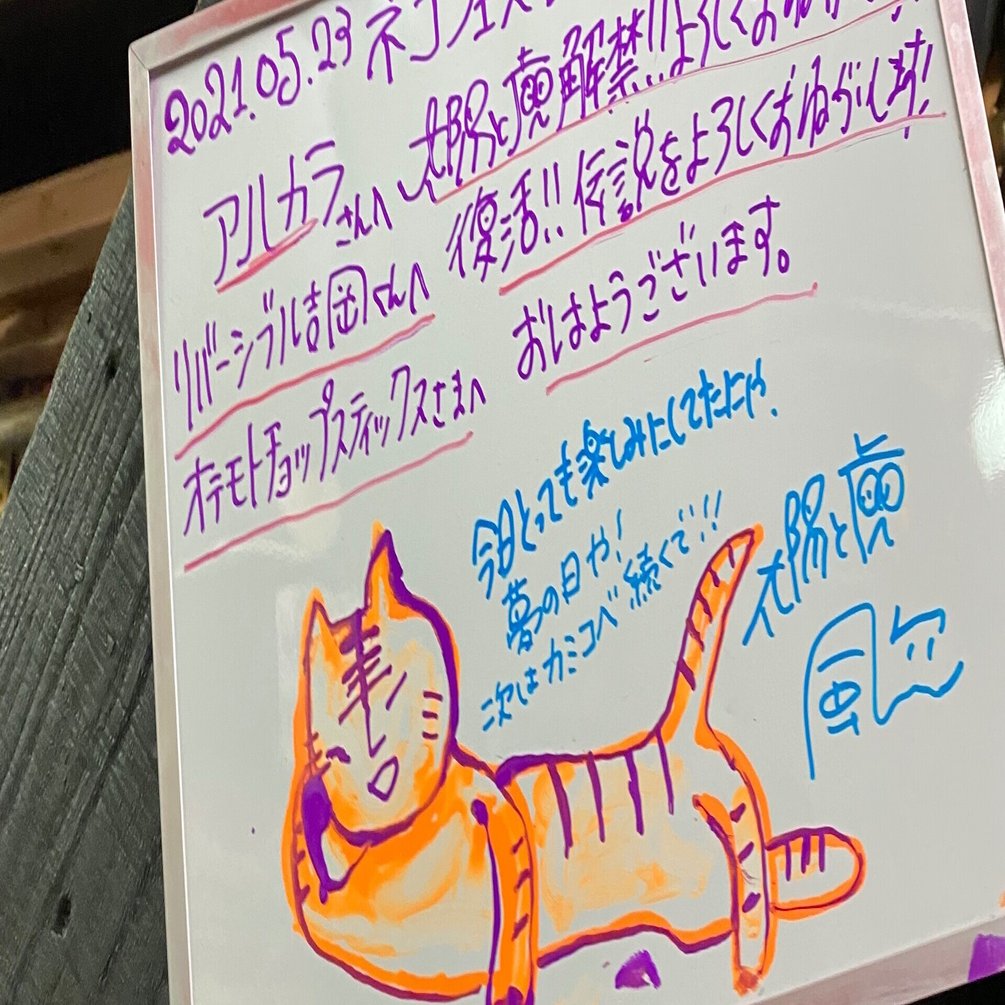 2021.05.23 ネコフェス
アルカラさんへ 太陽と虎解禁!!よろしくおねが
リバーシブル吉岡くんへ 復活!!伝説をよろしくおねがいします!
オテモトチョップスティックスさまへ おはようございます。
今日とっても楽しみにしてたにゃ、
夢の日や!
次はカミコベ続くで!!
太陽と虎
風次